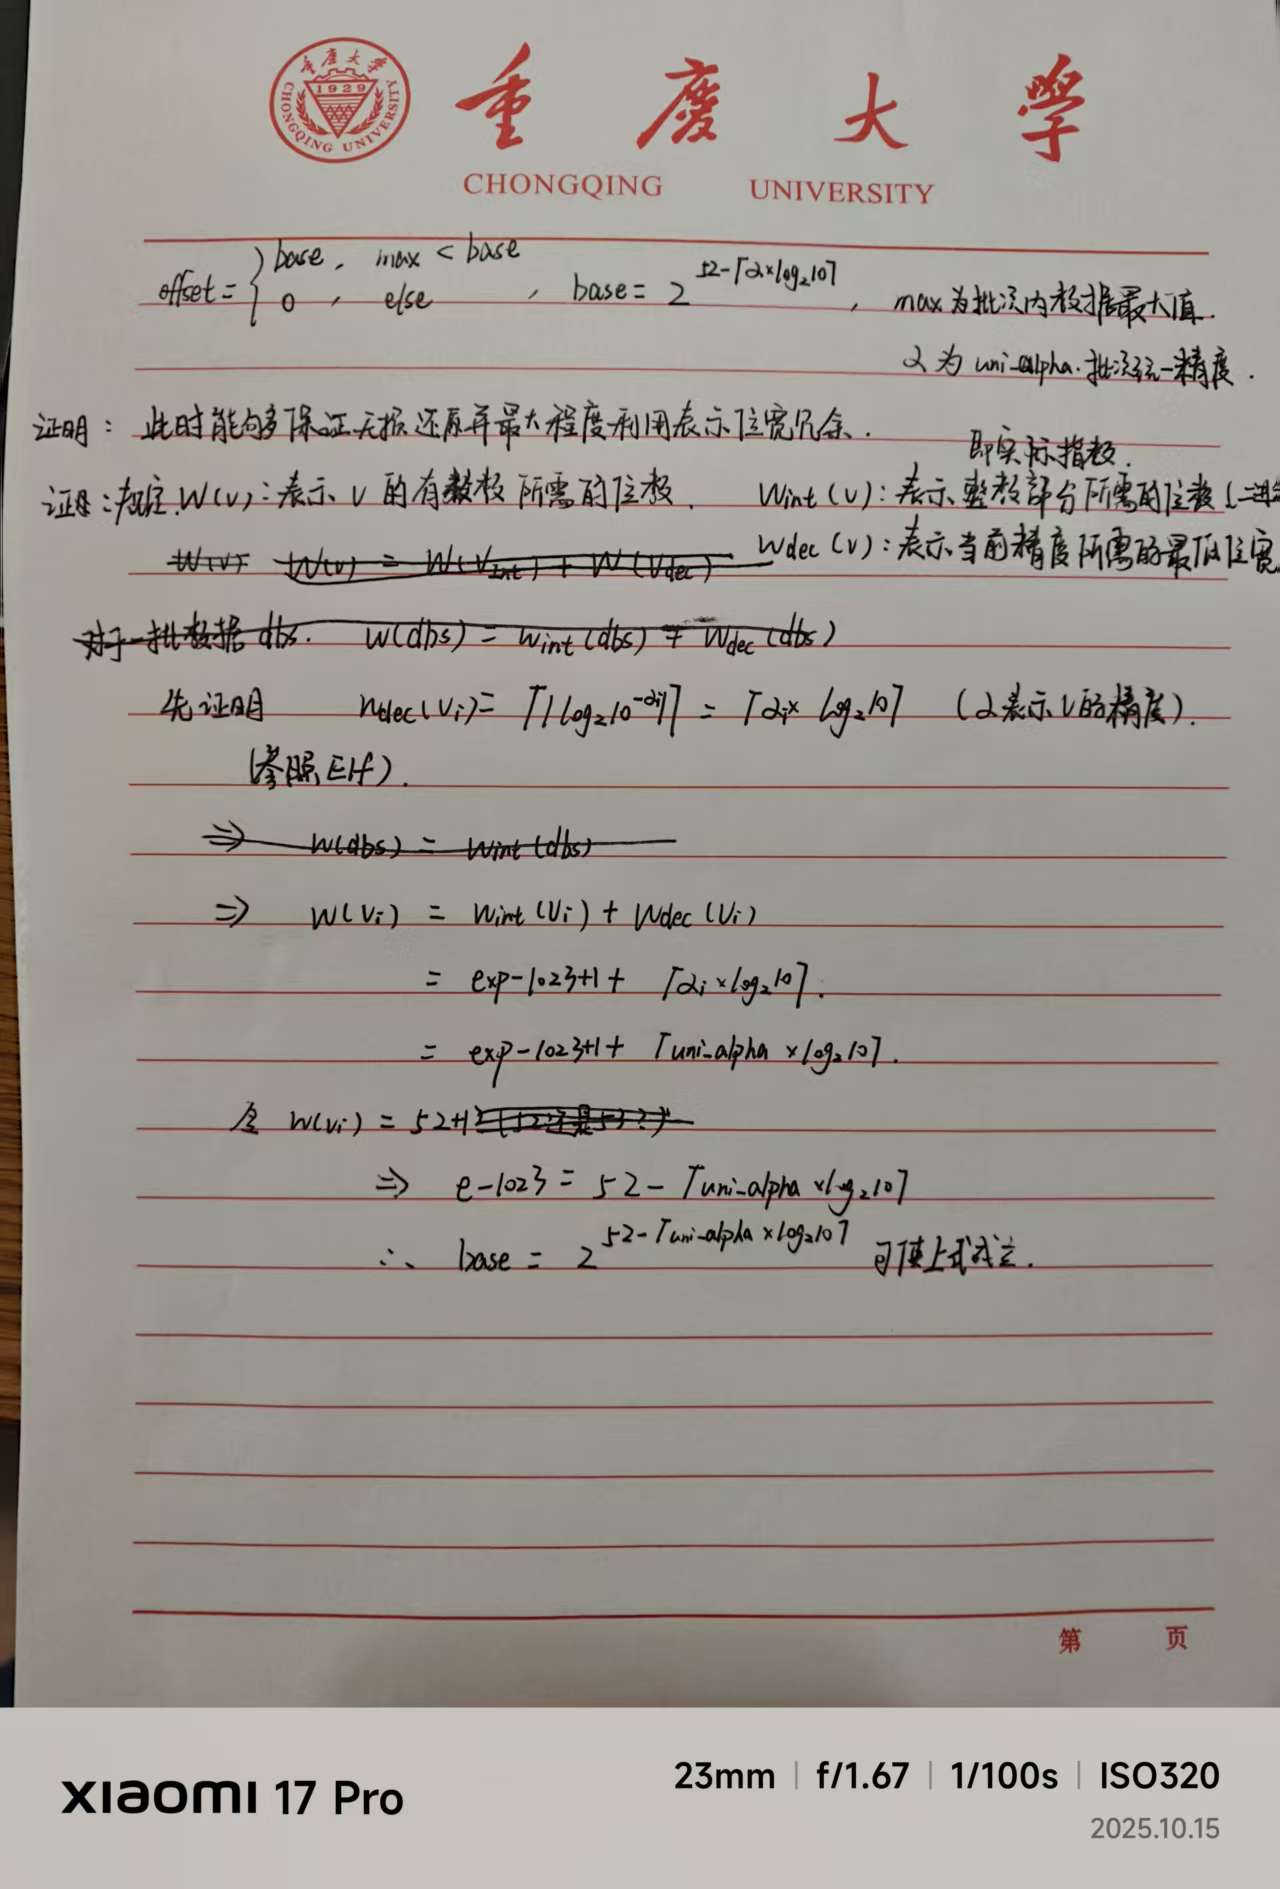 重庆大学
1929
CHONGQING UNIVERSITY
重慶大學
CHONGQING UNIVERSITY
offset = { base, max < base
0, else , base = 2^{52-⌈α×log₂10⌉}, max为批次内数据最大值.
α为 uni-alpha. 批次统一精度.
证明: 此时能够保证无损还原并最大程度利用表示位宽冗余.
即实际指数.
证明: 规定. W(v): 表示 v 的有效数 所需的位数. Wint(v): 表示整数部分所需的位数(二进
W(v) W(v) = W(Vint) + W(Vdec) Wdec(v): 表示当前精度所需的最低位宽
对于一批数据 dbs. W(dbs) = Wint(dbs) + Wdec(dbs)
先证明 ndec(Vi) = ⌈|log₂10^{-αi}|⌉ = ⌈αi × log₂10⌉ (α表示V的精度).
(参照 Elf).
⇒ W(dbs) = Wint(dbs)
⇒ W(Vi) = Wint(Vi) + Wdec(Vi)
= exp-1023+1 + ⌈αi × log₂10⌉.
= exp-1023+1 + ⌈uni-alpha × log₂10⌉.
令 W(Vi) = 52+1 (52还是53?)
⇒ e-1023 = 52 - ⌈uni-alpha × log₂10⌉
∴ base = 2^{52-⌈uni-alpha × log₂10⌉} 可使上式成立.
第 页
xiaomi 17 Pro
23mm | f/1.67 | 1/100s | ISO320
2025.10.15